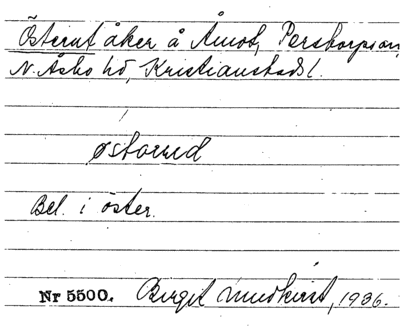 Österut åker å Åmot, Perstorps sn,
N. Åsbo hd, Kristianstads l.
østerud
Bel. i öster.
Nr 5500. Birgit Lundkvist, 1936.